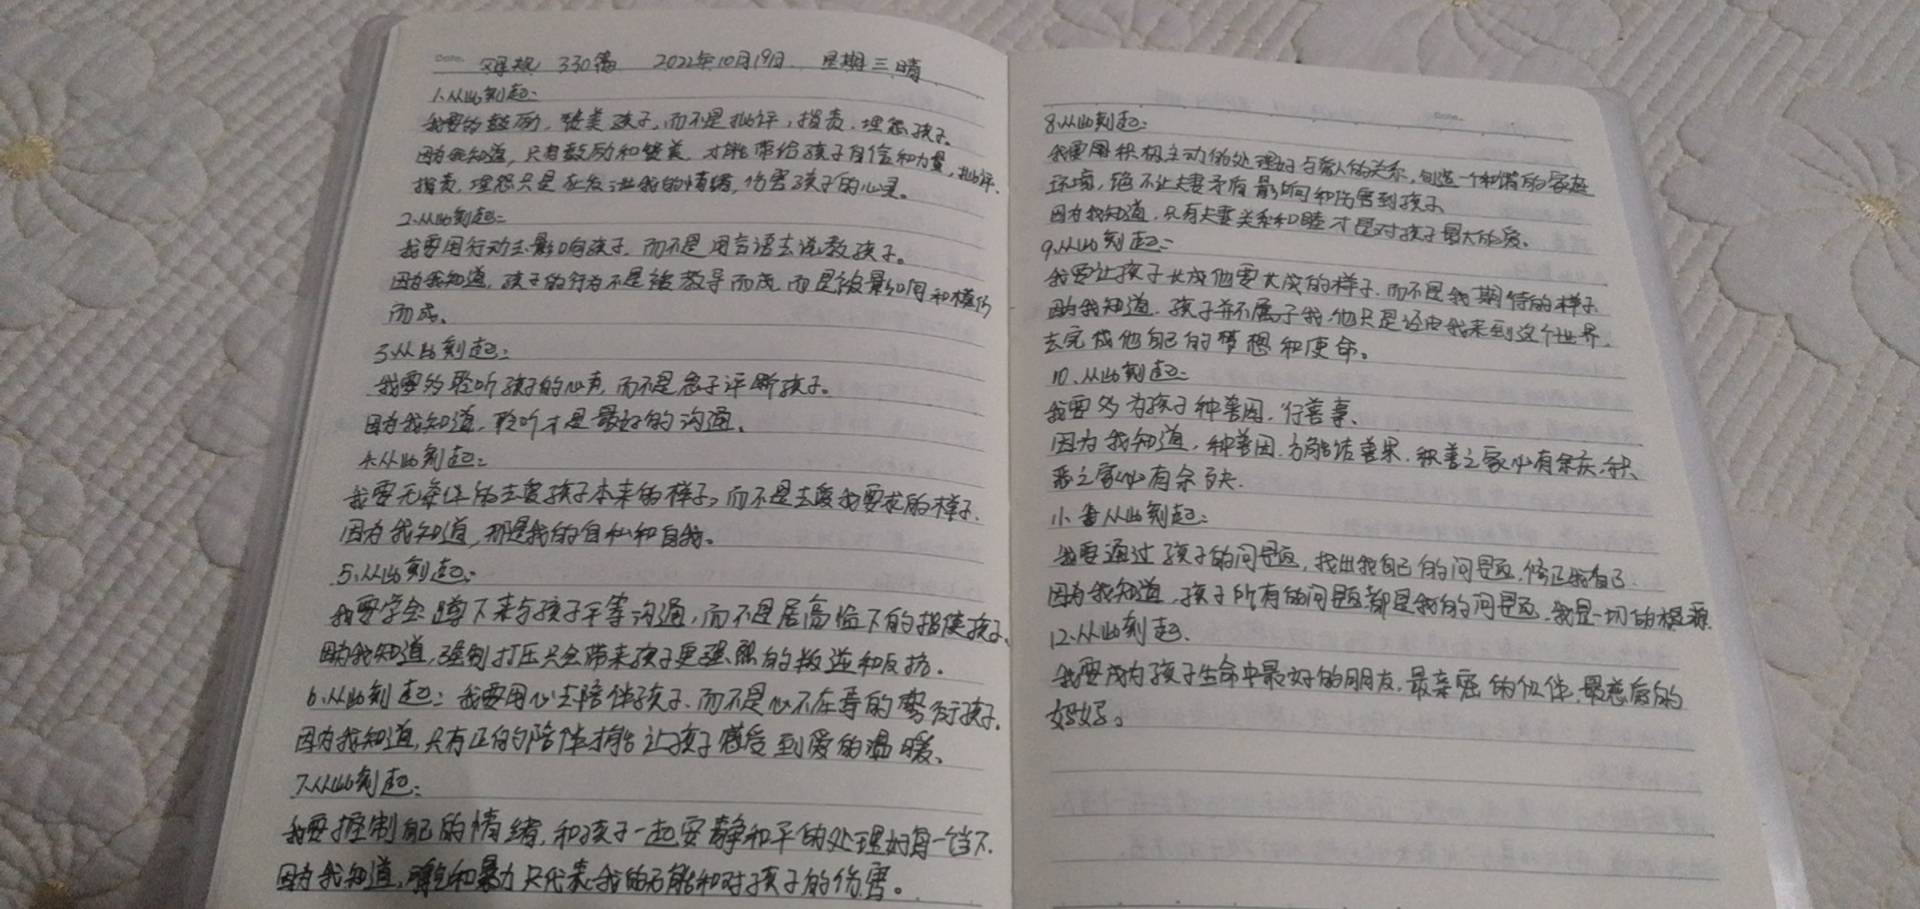 330篇 2022年10月19日 星期三 晴
1.从此刻起:
我要多鼓励,赞美孩子,而不是批评,指责,埋怨孩子。
因为我知道,只有鼓励和赞美,才能带给孩子自信和力量,批评、
指责,埋怨只是在发泄我的情绪,伤害孩子的心灵。
2.从此刻起:
我要用行动去影响孩子,而不是用言语去说教孩子。
因为我知道,孩子的行为不是被教导而成,而是被影响和模仿
而成。
3.从此刻起:
我要多聆听孩子的心声,而不是急于评断孩子。
因为我知道,聆听才是最好的沟通。
4.从此刻起:
我要无条件的去爱孩子本来的样子,而不是去爱我要求的样子.
因为我知道,那是我的自私和自我。
5.从此刻起:
我要学会蹲下来与孩子平等沟通,而不是居高临下的指使孩子、
因为我知道,强制打压只会带来孩子更强烈的叛逆和反抗.
6.从此刻起:我要用心去陪伴孩子,而不是心不在焉的敷衍孩子.
因为我知道,只有正的陪伴才能让孩子感受到爱的温暖、
7.从此刻起:
我要控制自己的情绪,和孩子一起安静和平的处理好每一个当下.
因为我知道,和暴力只代表我的无能和对孩子的伤害。
8.从此刻起:
我要用积极主动的处理好与爱人的关系,创造一个和谐的家庭
环境,绝不让夫妻矛盾影响和伤害到孩子
因为我知道,只有夫妻关系和睦才是对孩子最大的爱。
9.从此刻起:
我要让孩子长成他要长成的样子,而不是我期待的样子
因为我知道,孩子并不属于我,他只是经由我来到这个世界,
去完成他自己的梦想和使命。
10、从此刻起:
我要多为孩子种善因,行善事、
因为我知道,种善因,方能结善果,积善之家必有余庆,积
恶之家必有余殃.
11.从此刻起:
我要通过孩子的问题,找出我自己的问题,修正我自己.
因为我知道,孩子所有的问题都是我的问题,我是一切的根源.
12、从此刻起.
我要成为孩子生命中最好的朋友,最亲密的伙伴,最慈爱的
妈妈。